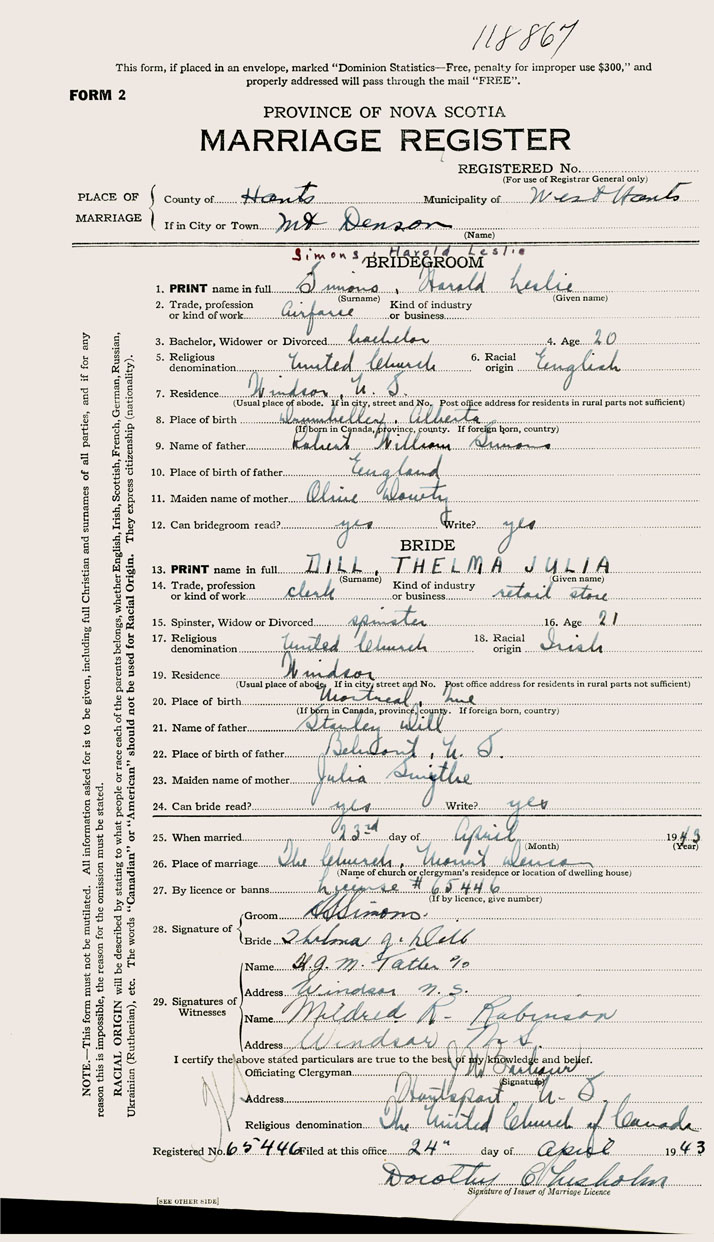 118867
This form, if placed in an envelope, marked "Dominion Statistics—Free, penalty for improper use $300," and
properly addressed will pass through the mail "FREE".
FORM 2
PROVINCE OF NOVA SCOTIA
MARRIAGE REGISTER
REGISTERED No.
(For use of Registrar General only)
PLACE OF MARRIAGE
County of Hants Municipality of West Hants
If in City or Town Mt Denson
(Name)
Simons, Harold Leslie
BRIDEGROOM
1. PRINT name in full Simons, Harold Leslie
(Surname) (Given name)
2. Trade, profession or kind of work Airforce Kind of industry or business
3. Bachelor, Widower or Divorced bachelor 4. Age 20
5. Religious denomination United Church 6. Racial origin English
7. Residence Windsor, N. S.
(Usual place of abode. If in city, street and No. Post office address for residents in rural parts not sufficient)
8. Place of birth Drumheller, Alberta
(If born in Canada, province, county. If foreign born, country)
9. Name of father Robert William Simons
10. Place of birth of father England
11. Maiden name of mother Olive Dowty
12. Can bridegroom read? yes Write? yes
BRIDE
13. PRINT name in full DILL, THELMA JULIA
(Surname) (Given name)
14. Trade, profession or kind of work clerk Kind of industry or business retail store
15. Spinster, Widow or Divorced spinster 16. Age 21
17. Religious denomination United Church 18. Racial origin Irish
19. Residence Windsor
(Usual place of abode. If in city, street and No. Post office address for residents in rural parts not sufficient)
20. Place of birth Montreal, Que
(If born in Canada, province, county. If foreign born, country)
21. Name of father Stanley Dill
22. Place of birth of father Belmont, N. S.
23. Maiden name of mother Julia Smythe
24. Can bride read? yes Write? yes
25. When married 23rd day of April 1943
(Month) (Year)
26. Place of marriage The Church, Mount Denson
(Name of church or clergyman's residence or location of dwelling house)
27. By licence or banns License # 65446
(If by licence, give number)
28. Signature of
Groom Simons.
Bride Thelma J. Dill
29. Signatures of Witnesses
Name H. G. M.
Address Windsor N. S.
Name Mildred R. Robinson
Address Windsor N. S.
I certify the above stated particulars are true to the best of my knowledge and belief.
Officiating Clergyman
(Signature)
Address Hantsport N. S.
Religious denomination The United Church of Canada
Registered No. 65446 Filed at this office 24" day of April 1943
Dorothy Chisholm
Signature of Issuer of Marriage Licence
[SEE OTHER SIDE]
NOTE.—This form must not be mutilated. All information asked for is to be given, including full Christian and surnames of all parties, and if for any
reason this is impossible, the reason for the omission must be stated.
RACIAL ORIGIN will be described by stating to what people or race each of the parents belongs, whether English, Irish, Scottish, French, German, Russian,
Ukrainian (Ruthenian), etc. The words "Canadian" or "American" should not be used for Racial Origin. They express citizenship (nationality).